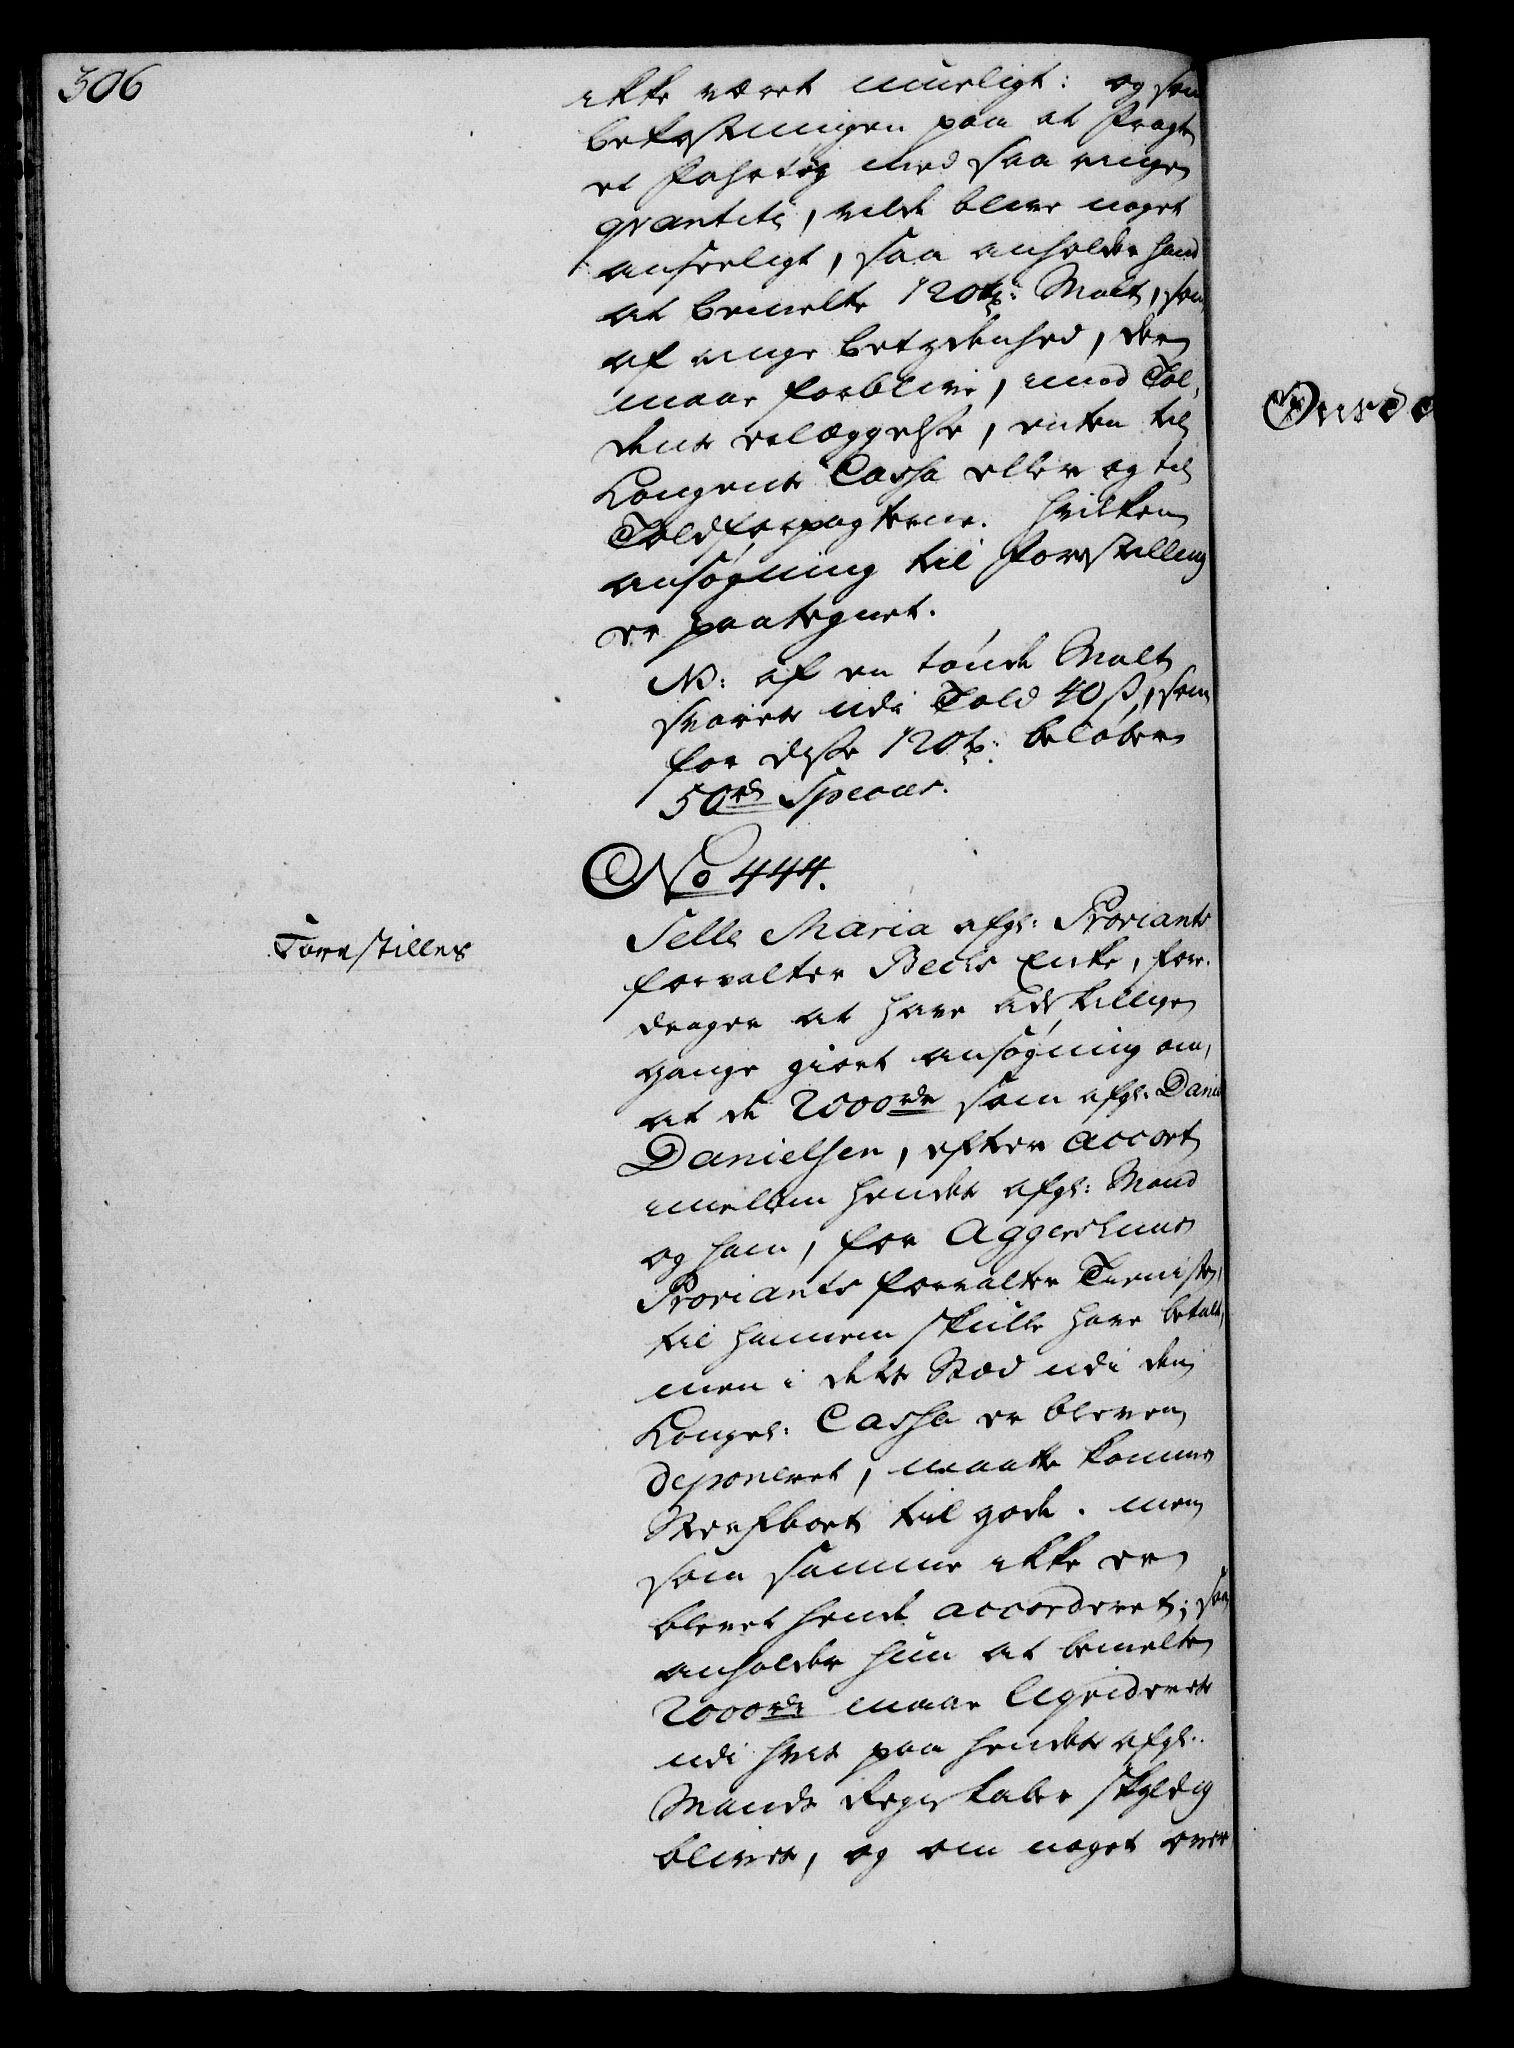 306
ikke været mueligt: og som
bekostningen paa at fragte
et fahrtøy med saa ringe
qvantite, vilde blive noget
anseeligt, saa anholder hand
at bemelte 120 tr: Malt, som
af ringe betydenhed, der
maae forblive, imod Tol-
dens erlæggelse, enten til
Kongens Cassa eller og til
Toldforpagterne. hvilken
ansøgning til forestilling
er paategnet.
NB: af en tønde Malt
svares udi Told 40 ß, som
for disse 120 tr: beløber
50 rd Species.
No 444.
Forestilles
Selle Maria afg: Proviants
forvalter Bechs Enke, fore-
drager at have adskillige
gange giort ansøgning om,
at de 2000 rdr som afg: Daniel
Danielsen, efter accort
imellem hendes afg: Mand
og ham, for Aggershuus
Proviants forvalter Tieniste,
til hannem skulle have betalt,
men i dets Sted udi den
Kongel: Cassa er bleven
deponeret, maatte komme
Sterfboet til gode. men
som samme ikke er
blevet hende accorderet; saa
anholder hun at bemelte
2000 rdr maae liqvideres
udi hvis paa hendes afg:
Mands Regnskaber skyldig
bliver, og om noget over